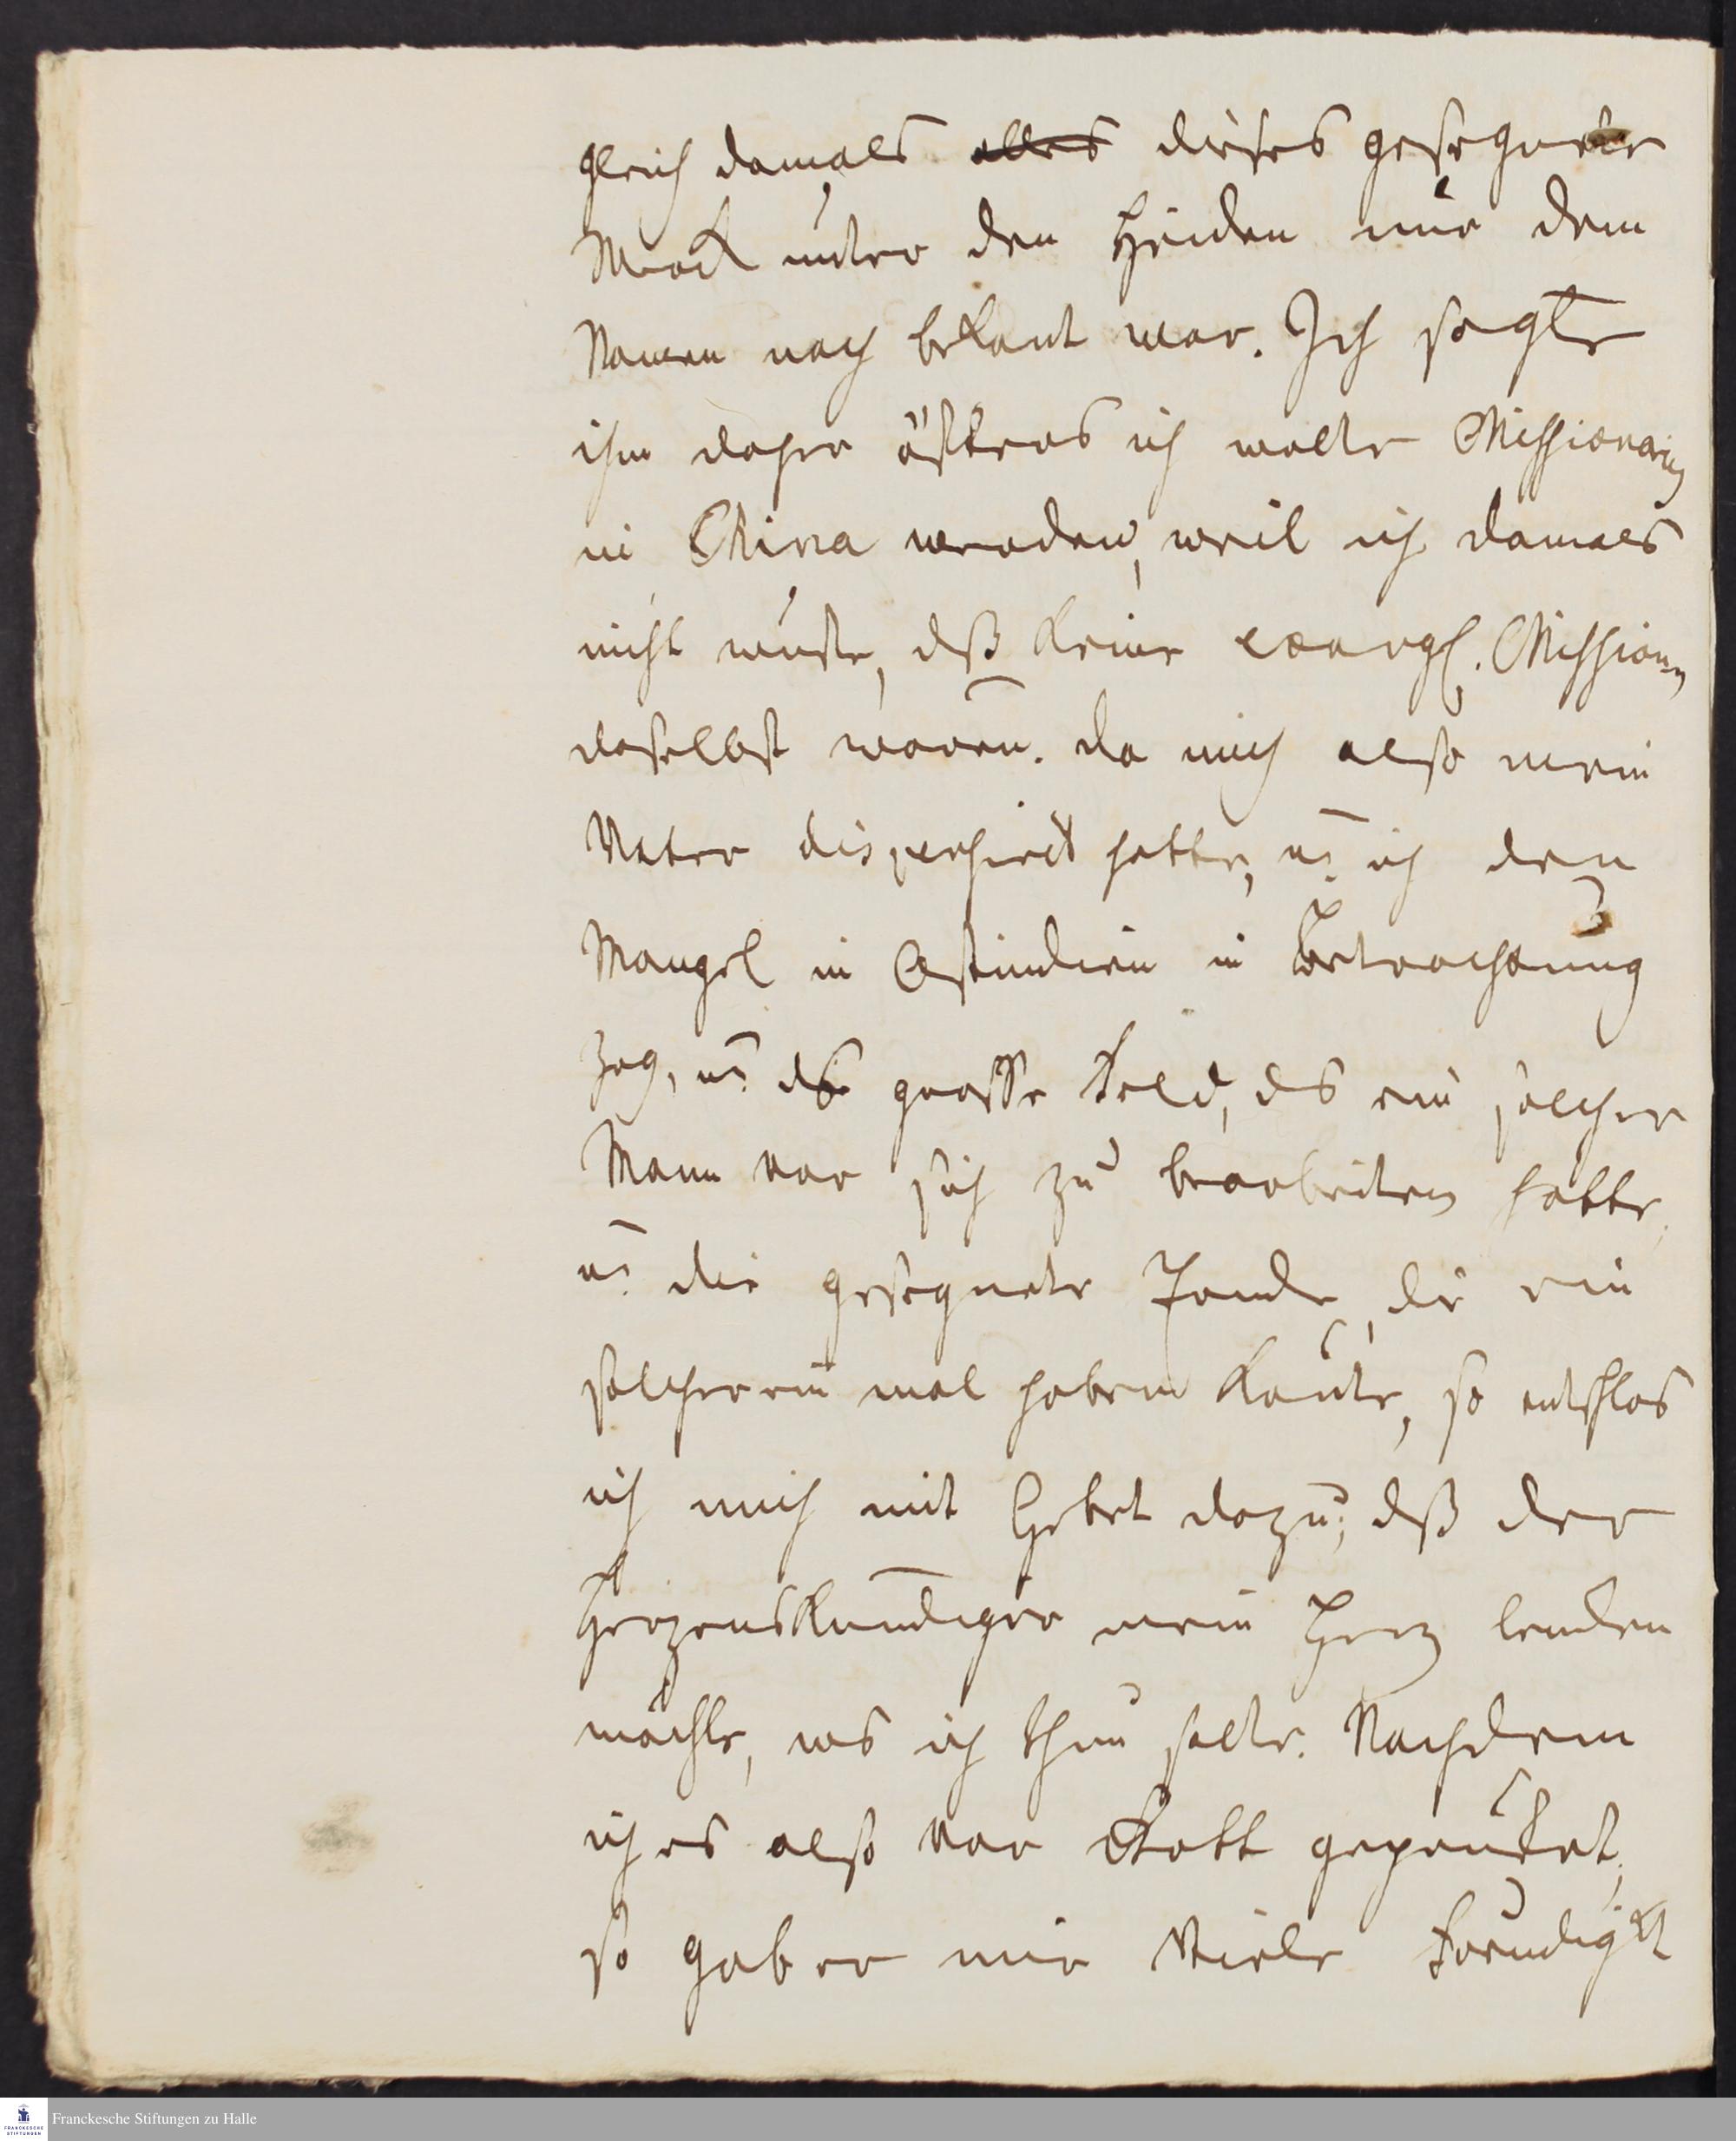 gleich damals alles dieses gesegnete
Werck unter den Heiden nur dem
Namen nach bekant war. Ich sagte
ihm daher öfters ich wolte Missionarius
in China werden, weil ich damals
nicht wuste, dß keine evangl. Missionn
daselbst wären. da mich also mein
Vater dispensiret hatte, u. ich den
Mangel in Ostindien in Betrachtung
zog, u. ds grosse Feld, ds ein solcher
Mann vor sich zu bearbeiten hätte,
u. die gesegnete Freude, die ein
solcher ein mal haben könte, so entschlos
ich mich mit Gebet dazu; dß der
Herzenskündiger mein Herz lencken
möchte, was ich thun solte. Nachdem
ich es also vor Gott geprüfet,
so gab er mir viele Freudigkt
Franckesche Stiftungen zu Halle
FRANCKESCHE
STIFTUNGEN